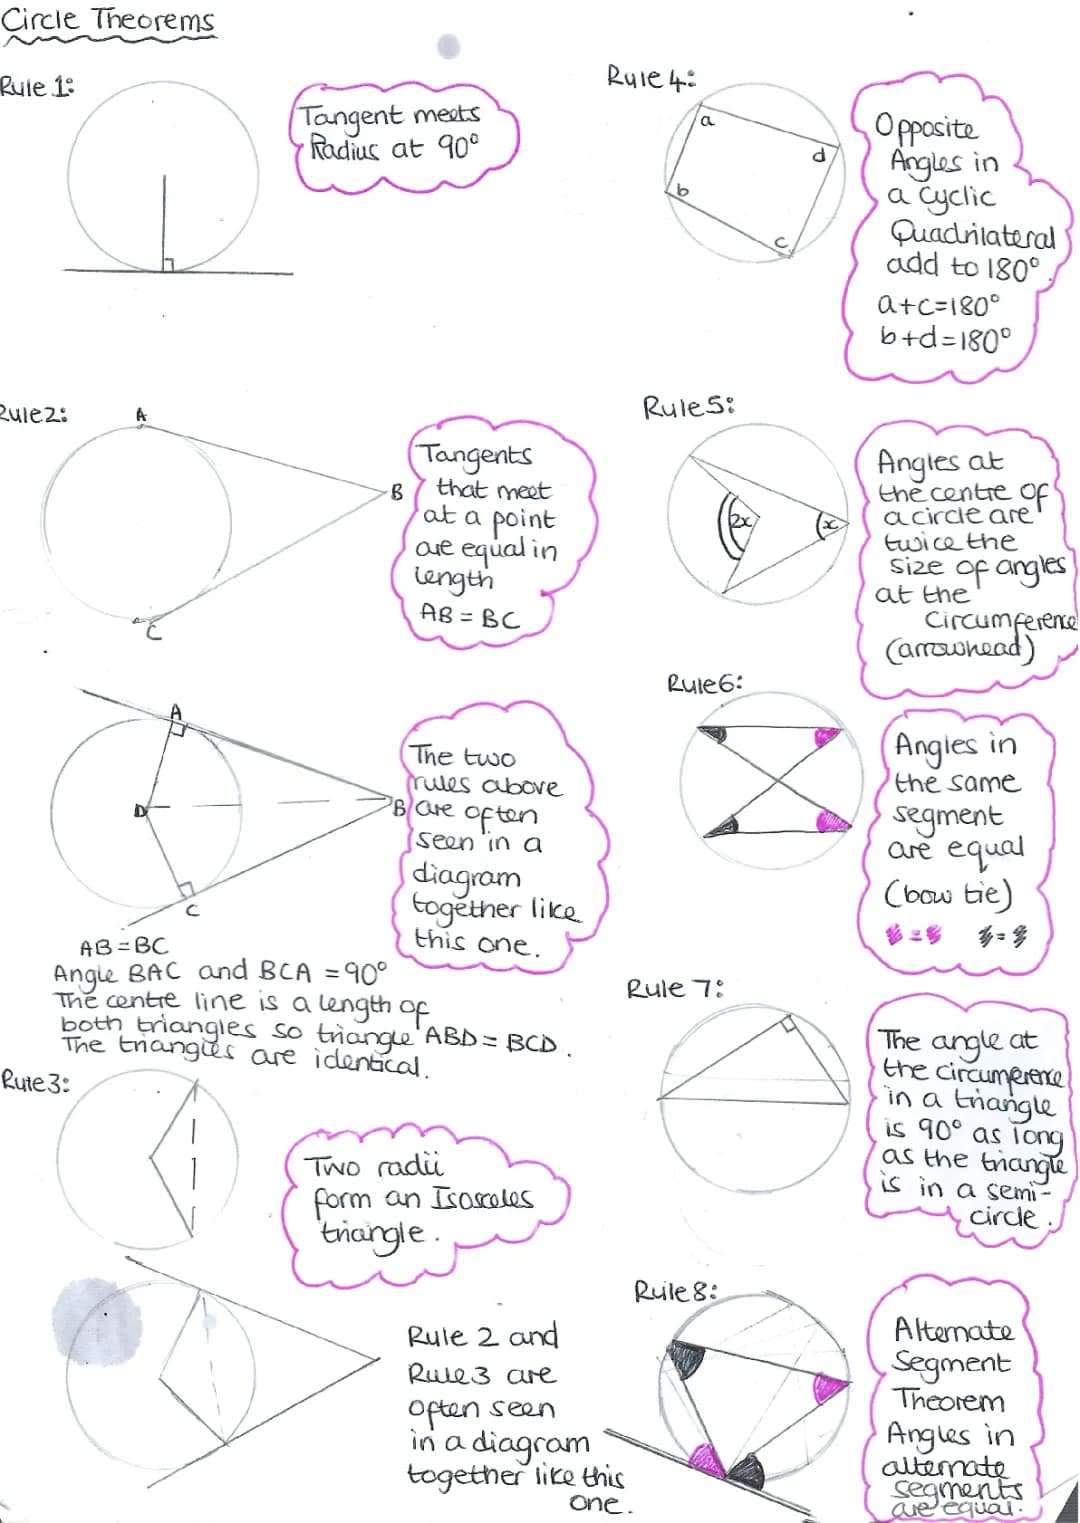 Circle Theorems
Rule 1:
Tangent meets
Radius at 90°
Rule2:
A
B
C
Tangents
that meet
at a point
are equal in
length
AB = BC
A
D
B
C
The two
rules above
are often
seen in a
diagram
together like
this one.
AB=BC
Angle BAC and BCA = 90°
The centre line is a length of
both triangles so triangle ABD = BCD.
The triangles are identical.
Rule3:
Two radii
form an Isosceles
triangle.
Rule 2 and
Rule3 are
often seen
in a diagram
together like this
one.
Rule 4:
a
d
b
c
Opposite
Angles in
a cyclic
Quadrilateral
add to 180°.
a+c=180°
b+d=180°
Rule5:
2x
x
Angles at
the centre of
a circle are
twice the
size of angles
at the
circumference
(arrowhead)
Rule6:
Angles in
the same
segment
are equal
(bow tie)
= =
Rule 7:
The angle at
the circumference
in a triangle
is 90° as long
as the triangle
is in a semi-
circle.
Rule8:
Alternate
Segment
Theorem
Angles in
alternate
segments
are equal.